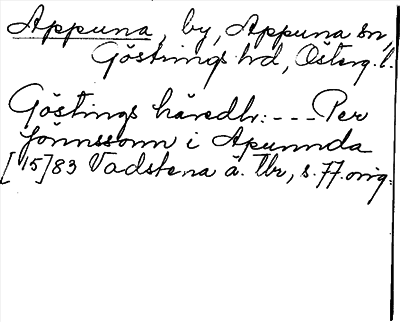 Appuna, by, Appuna sn,
Göstrings hd, Österg. l.
Göstings häredh: --- Per
Jonnssonn i Apunnda
[15]83 Vadstena ä. Tbr, s. 77. orig.